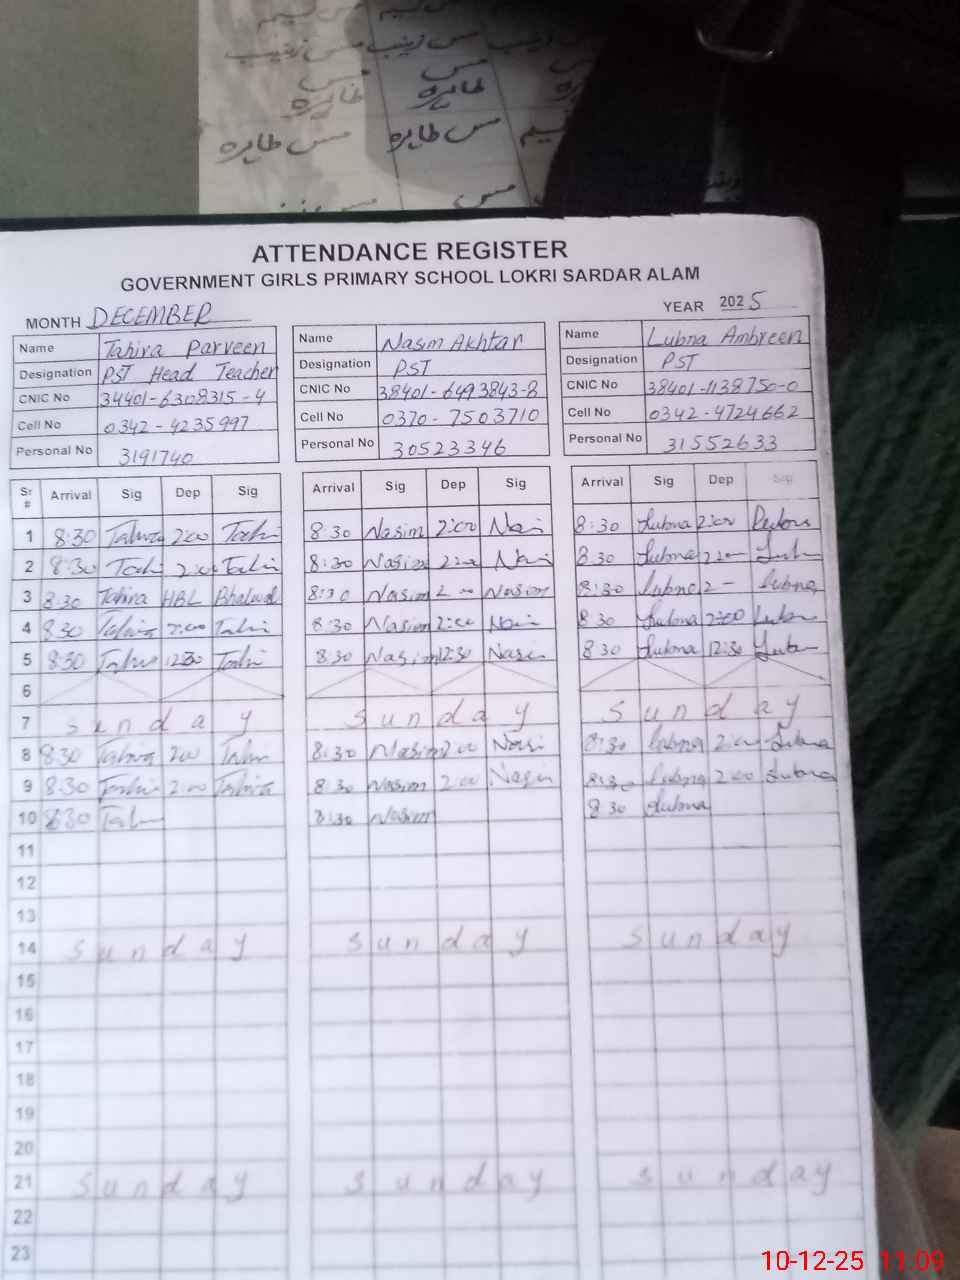 مس زینب مس زینب
مس مس
طاہرہ طاہرہ
مس طاہرہ مس طاہرہ
مس
ATTENDANCE REGISTER
GOVERNMENT GIRLS PRIMARY SCHOOL LOKRI SARDAR ALAM
MONTH DECEMBER YEAR 2025
Name Tahira Parveen Name Nasim Akhtar Name Lubna Ambreen
Designation PST Head Teacher Designation PST Designation PST
CNIC No 34401-6308315-4 CNIC No 38401-6493843-8 CNIC No 38401-1138750-0
Cell No 0342-4235997 Cell No 0370-7503710 Cell No 0342-4724662
Personal No 3191740 Personal No 30523346 Personal No 31552633
Sr # Arrival Sig Dep Sig Arrival Sig Dep Sig Arrival Sig Dep Sig
1 8:30 Tahira 2:00 Tahi 8:30 Nasim 2:00 Nasi 8:30 Lubna 2:00
2 8:30 Tahi 2:00 Tahi 8:30 Nasim 2:00 Nasi 8:30 Lubna 2 — Lub
3 8:30 Tahira HBL Bhalwal 8:30 Nasim 2 00 Nasim 8:30 Lubna 2 – Lubna
4 8:30 Tahira 2:00 Tahi 8:30 Nasim 2:00 Nasi 8:30 Lubna 2:00 Lub
5 8:30 Tahi 12:30 Tahi 8:30 Nasim 12:30 Nasi 8:30 Lubna 12:30 Lub
6
7 Sunday Sunday Sunday
8 8:30 Tahira 2:00 Tahi 8:30 Nasim 2:00 Nasi 8:30 Lubna 2:00 Lubna
9 8:30 Tahi 2:00 Tahira 8:30 Nasim 2:00 Nasim 8:30 Lubna 2:00 Lubna
10 8:30 Tah 8:30 Nasim 8:30 Lubna
11
12
13
14 Sunday Sunday Sunday
15
16
17
18
19
20
21 Sunday Sunday Sunday
22
23
10-12-25 11:09